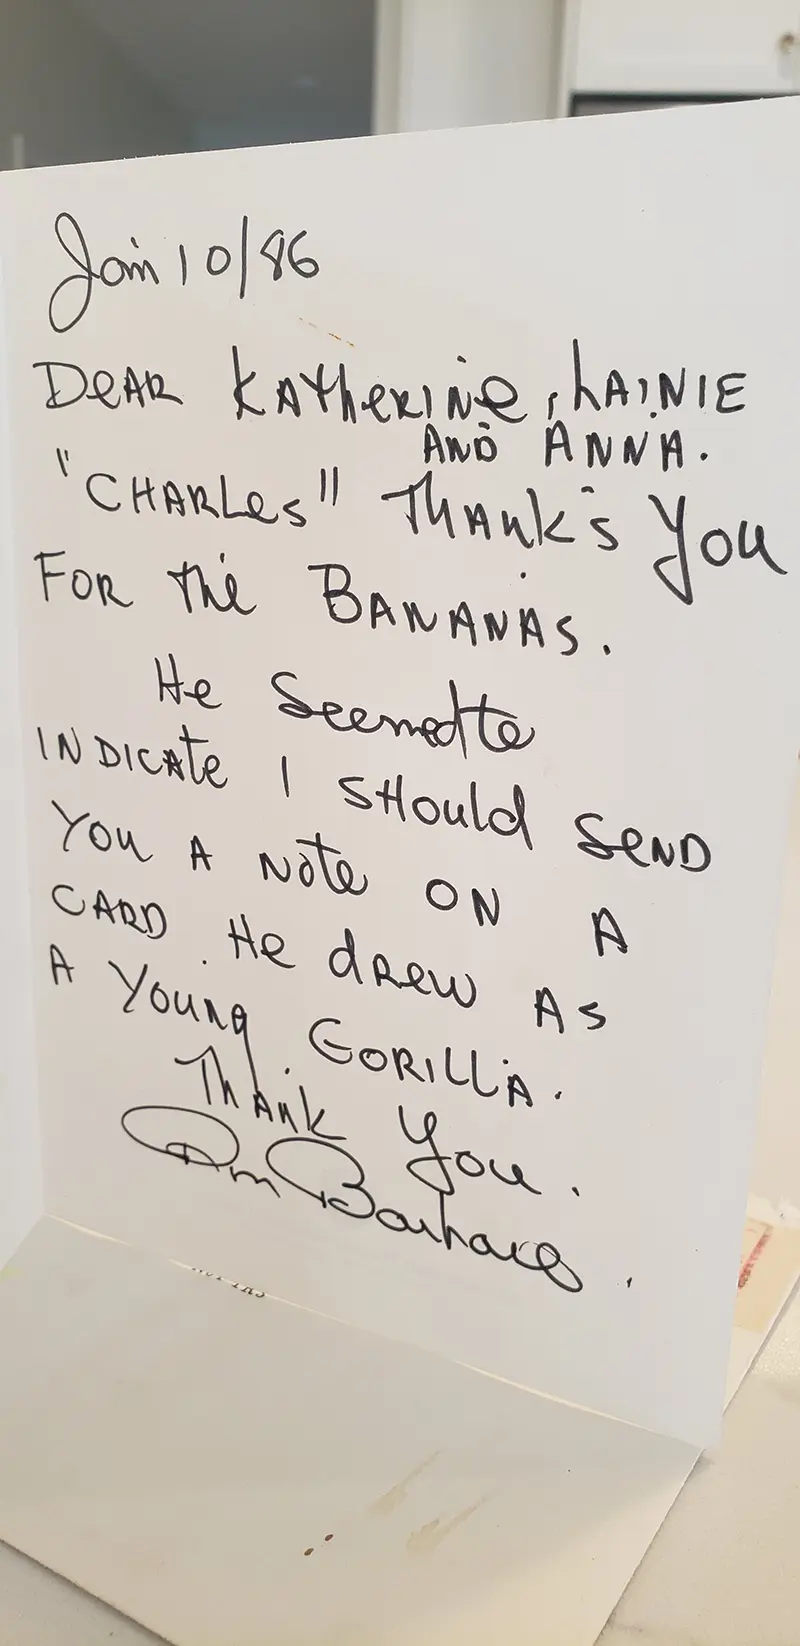 Jan 10/86
Dear Katherine, Lainie
and Anna.
"Charles" thanks you
for the bananas.
He seemed to
indicate I should send
you a note on a
card. He drew as
a young gorilla.
Thank you.